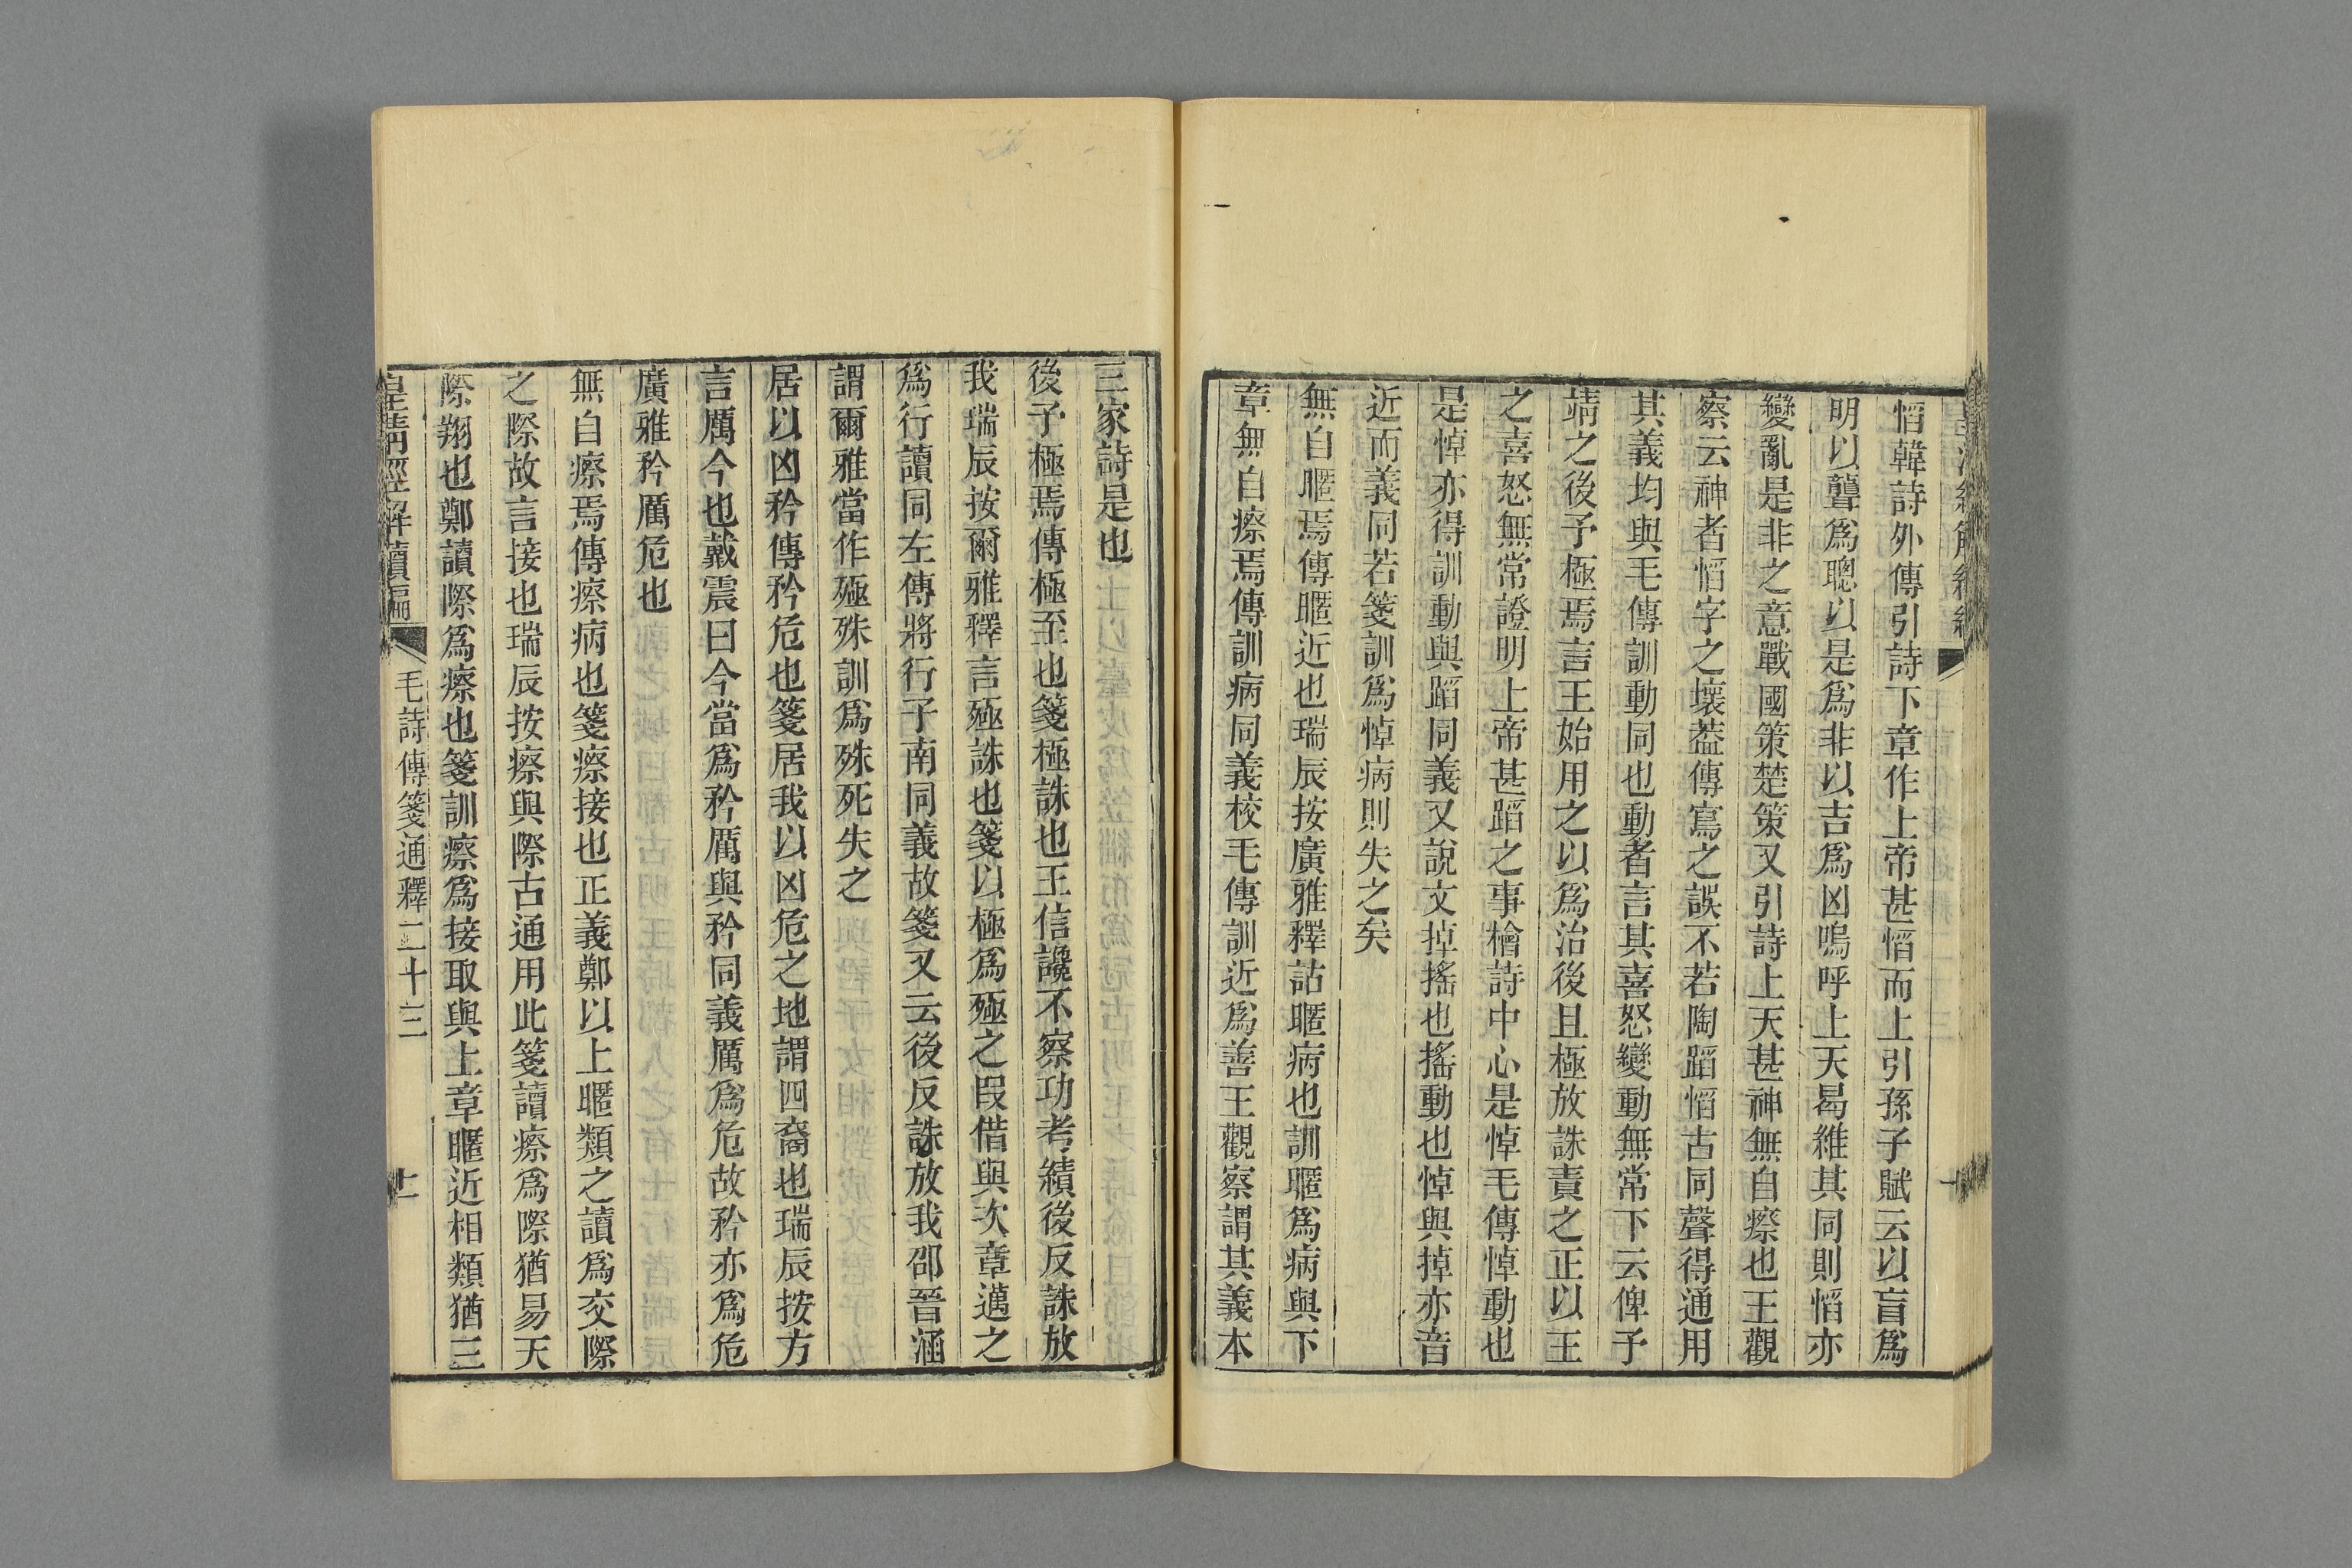 慆韓詩外傳引詩下章作上帝甚慆而上引孫子賦云以盲爲
明以聾爲聰以是爲非以吉爲凶嗚呼上天曷維其同則慆亦
變亂是非之意戰國策楚策又引詩上天甚神無自瘵也王觀
察云神者慆字之壞葢傳寫之誤不若陶蹈慆古同聲得通用
其義均與毛傳訓動同也動者言其喜怒變動無常下云俾予
靖之後予極焉言王始用之以爲治後且極放誅責之正以王
之喜怒無常證明上帝甚蹈之事檜詩中心是悼毛傳悼動也
是悼亦得訓動與蹈同義又說文掉搖也搖動也悼與掉亦音
近而義同若箋訓爲悼病則失之矣
無自暱焉傳暱近也瑞辰按廣雅釋詁暱病也訓暱爲病與下
章無自瘵焉傳訓病同義校毛傳訓近爲善王觀察謂其義本
三家詩是也
後予極焉傳極至也箋極誅也王信讒不察功考績後反誅放
我瑞辰按爾雅釋言殛誅也箋以極爲殛之叚借與次章邁之
爲行讀同左傳將行子南同義故箋又云後反誅放我邵晉涵
謂爾雅當作殛殊訓爲殊死失之
居以凶矜傳矜危也箋居我以凶危之地謂四裔也瑞辰按方
言厲今也戴震曰今當爲矜厲與矜同義厲爲危故矜亦爲危
廣雅矜厲危也
無自瘵焉傳瘵病也箋瘵接也正義鄭以上暱類之讀爲交際
之際故言接也瑞辰按瘵與際古通用此箋讀瘵爲際猶易天
際翔也鄭讀際爲瘵也箋訓瘵爲接取與上章暱近相類猶三
皇淸經解續編
毛詩傳箋通釋二十三
十一